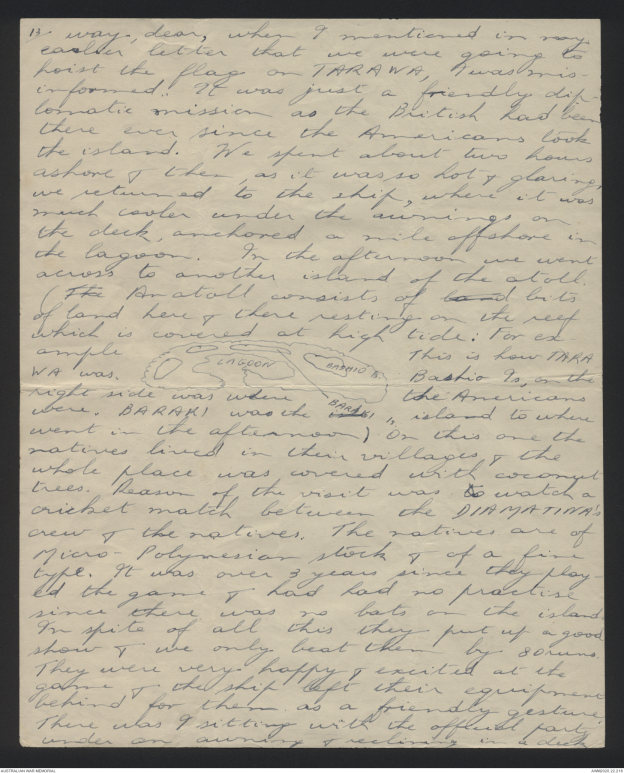 13. way, dear, when I mentioned in my
earlier letter that we were going to
hoist the flag on TARAWA, I was mis-
informed. It was just a friendly dip-
lomatic mission as the British had been
there ever since the Americans took
the island. We spent about two hours
ashore & then, as it was so hot & glaring,
we returned to the ship, where it was
much cooler under the awnings on
the deck, anchored a mile offshore in
the lagoon. In the afternoon we went
across to another island of the atoll.
(The An atoll consists of land bits
of land here & there resting on the reef
which is covered at high tide: For ex-
ample This is how TARA
WA was. LAGOON BASHIO IS. Bashio Is, on the
right side was where the Americans
BARAKI
were. BARAKI was the island to where
went in the afternoon). On this one the
natives lived in their villages & the
whole place was covered with coconut
trees. Reason of the visit was to watch a
cricket match between the DIAMATINA's
crew & the natives. The natives are of
Micro-Polynesian stock & of a fine
type. It was over 3 years since they play-
ed the game & had had no practise
since there was no bats on the island.
In spite of all this they put up a good
show & we only beat them by 80 runs.
They were very happy & excited at the
game & the ship left their equipment
behind for them as a friendly gesture.
There was I sitting with the official party
under an awning & reclining in a deck
AUSTRALIAN WAR MEMORIAL